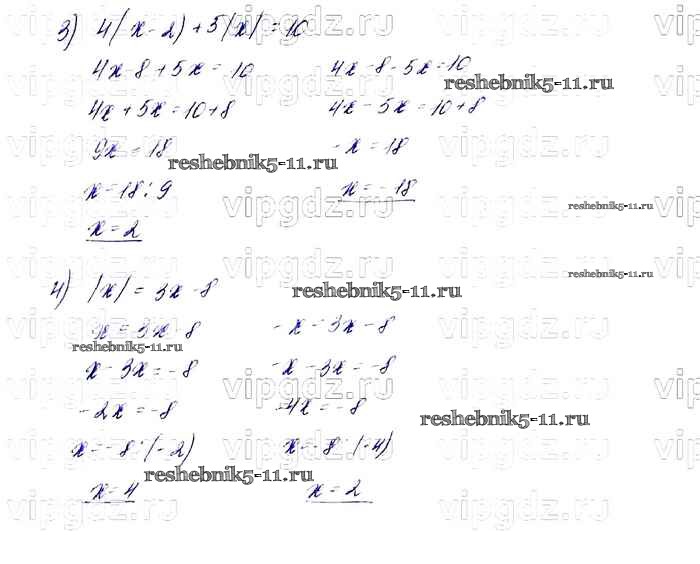 3) 4(x-2)+5|x|=10
4x-8+5x=10 4x-8-5x=10
4x+5x=10+8 4x-5x=10+8
9x=18 -x=18
x=18:9 x=-18
x=2
4) |x|=3x-8
x=3x-8 -x=3x-8
x-3x=-8 -x-3x=-8
-2x=-8 -4x=-8
x=-8:(-2) x=-8 (-4)
x=4 x=2
reshebnik5-11.ru
reshebnik5-11.ru
reshebnik5-11.ru
reshebnik5-11.ru
reshebnik5-11.ru
reshebnik5-11.ru
reshebnik5-11.ru
reshebnik5-11.ru
vipgdz.ru